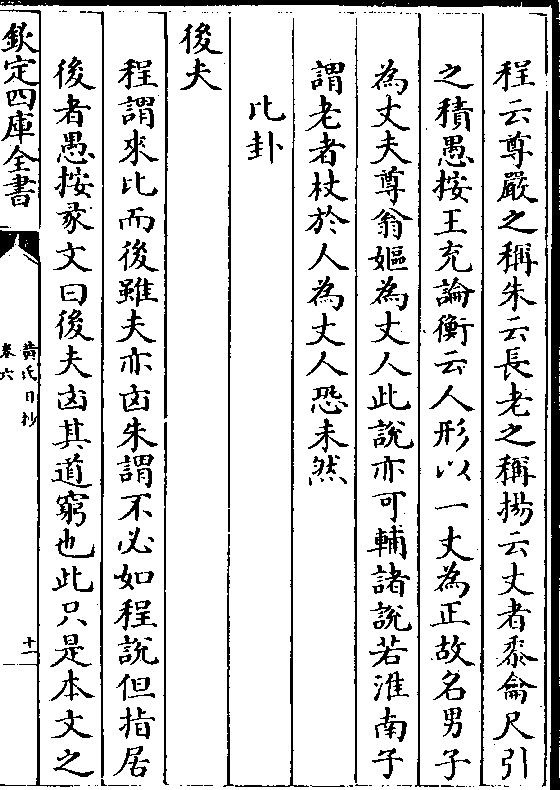 程云尊嚴之稱朱云長老之稱揚云丈者黍龠尺引
之積愚按王充論衡云人形以一丈為正故名男子
為丈夫尊翁嫗為丈人此說亦可輔諸說若淮南子
謂老者杖於人為丈人恐未然
比卦
後夫
程謂來比而後雖夫亦凶朱謂不必如程說但指居
後者愚按彖文曰後夫凶其道窮也此只是本文之
欽定四庫全書
黄氏日抄
卷六
十二